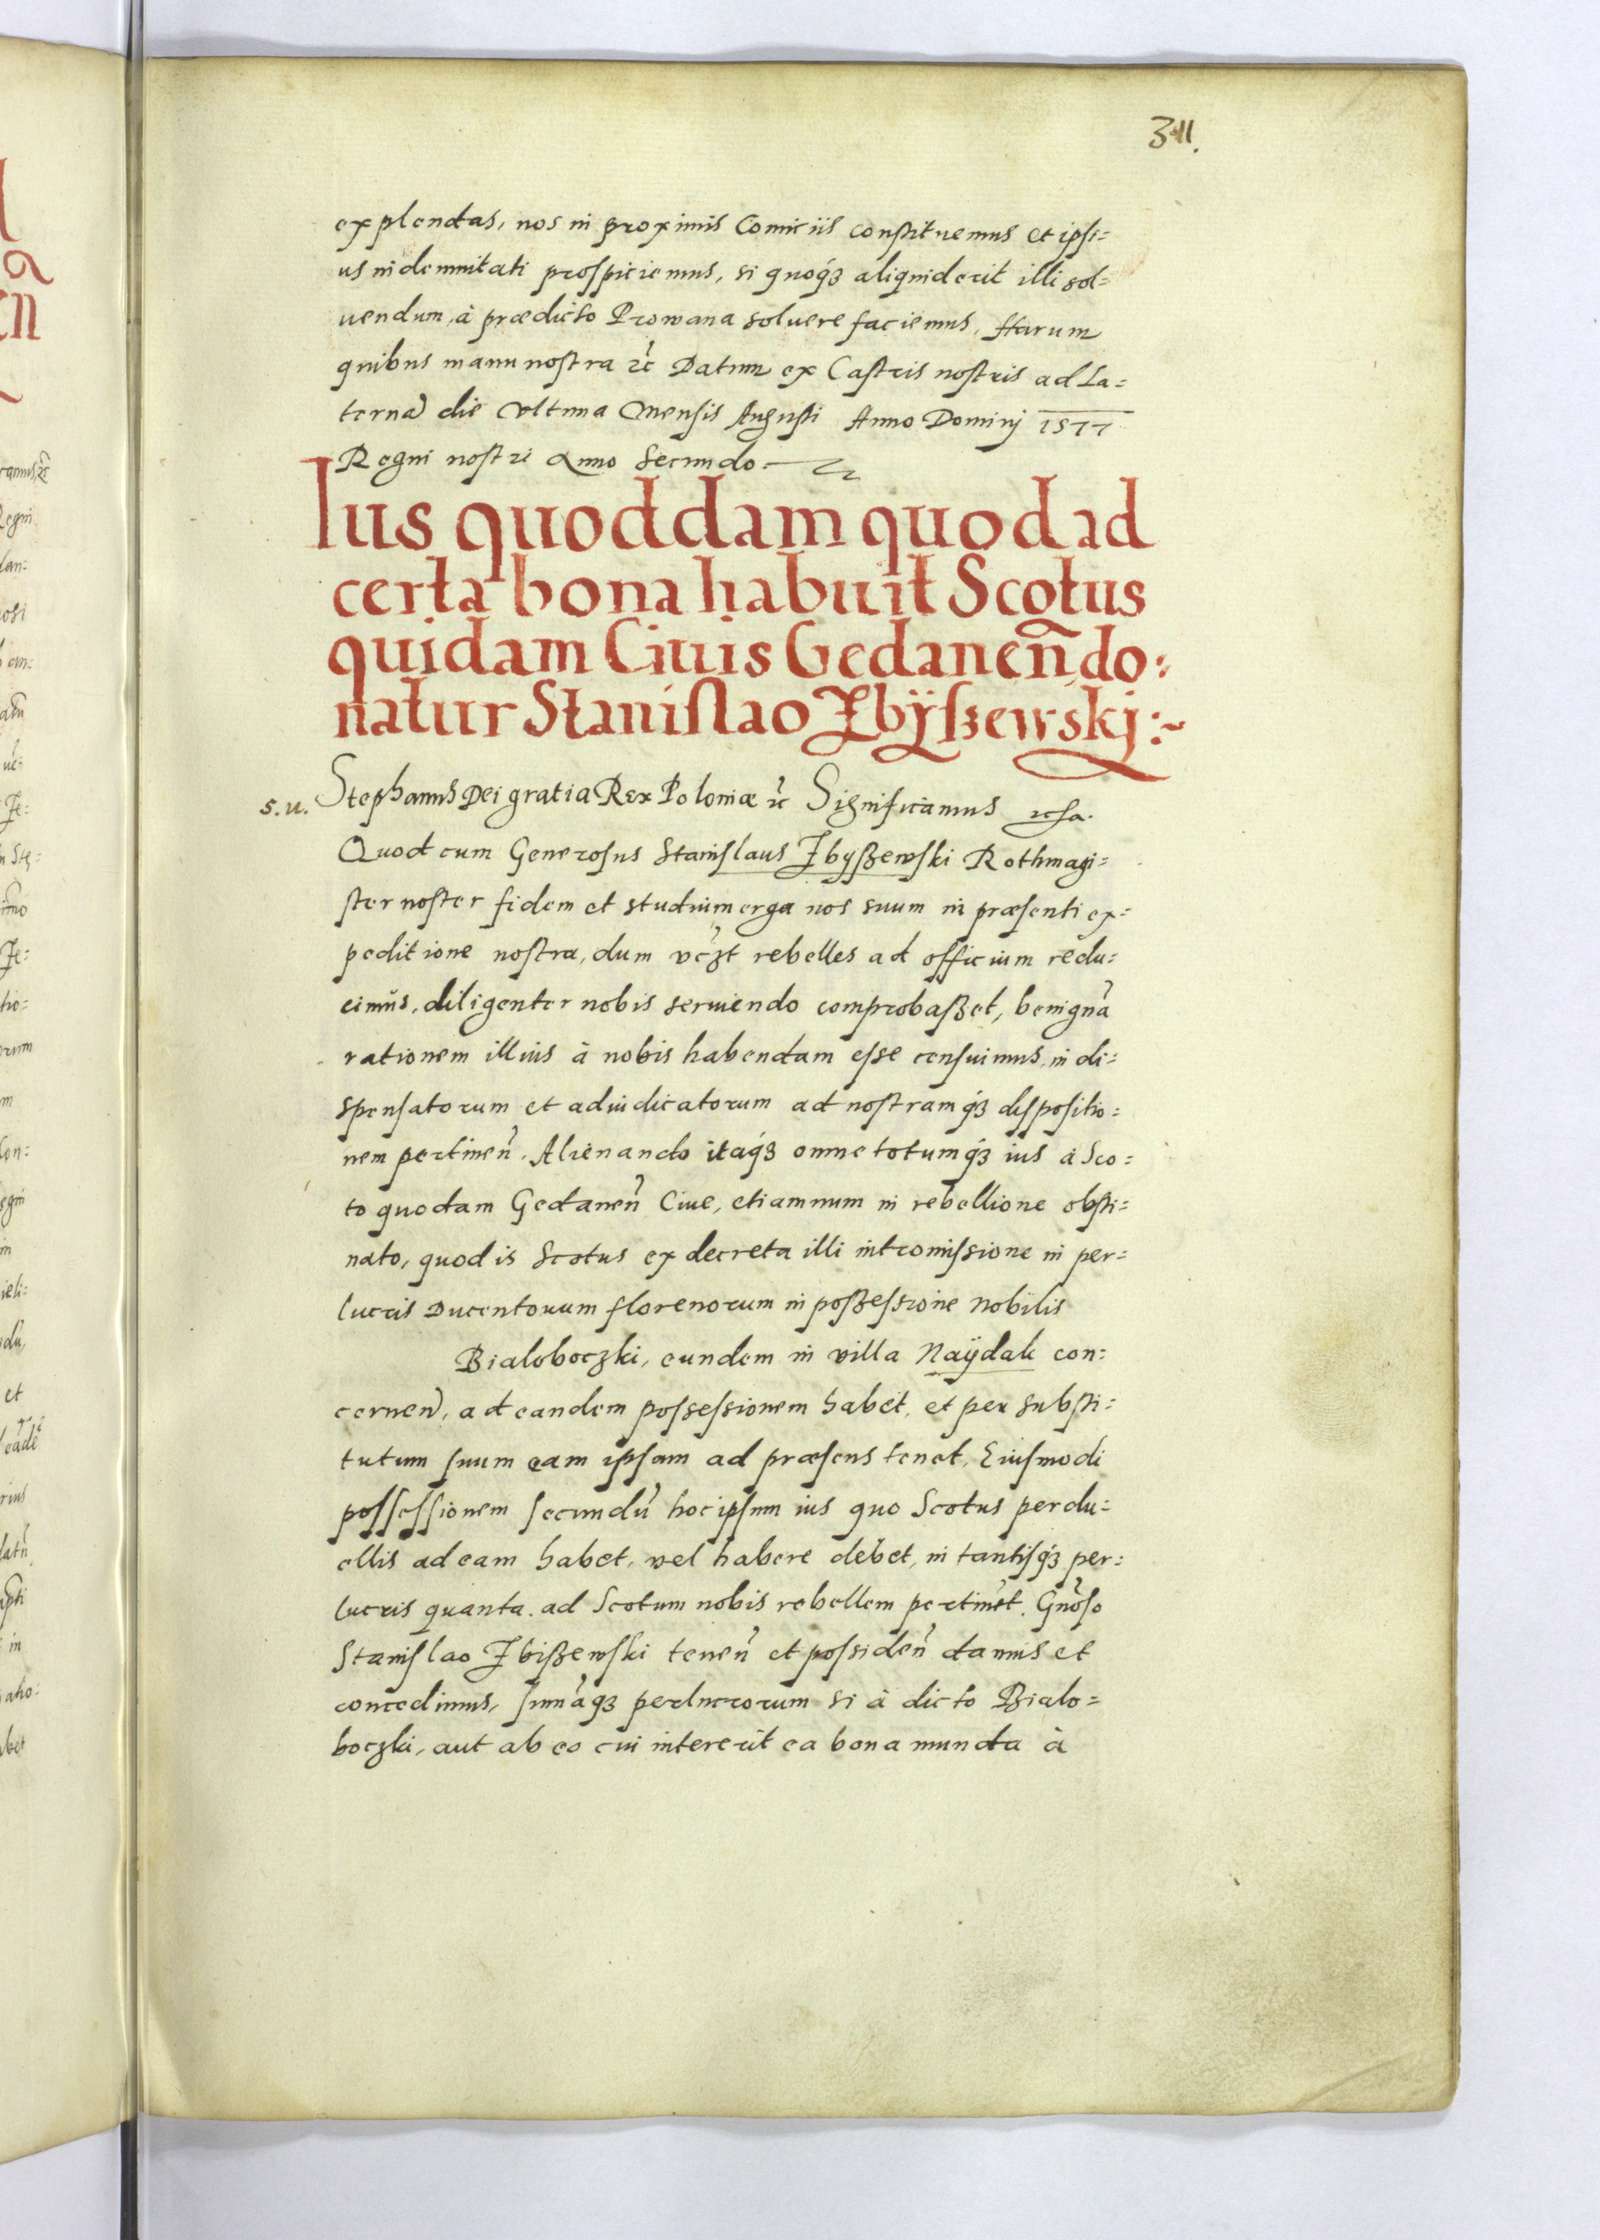 311.
explendas, nos in proximis Comiciis constituemus et ipsi=
us indemnitati prospiciemus, si quoq́ʒ aliquid erit illi sol=
uendum, à prædicto Prowana soluere faciemus, Harum
quibus manu nostra ꝛc̃ Datum ex Castris nostris ad La=
ternã die vltima Mensis Augusti Anno Dominj 1577
Regni nostri Anno Secundo.
Ius quoddam quod ad
certa bona habuit Scotus
quidam Ciuis Gedaneñ do:
natur Stanislao Zbÿszewskj:~
s.u. Stephanus Dei gratia Rex Poloniæ ꝛc̃ Significamus
Quod cum Generosus Stanislaus Zbyszewski Rothmagi=
ster noster fidem et studium erga nos suum in præsenti ex=
peditione nostra, dum vc̃zt rebelles ad officium redu=
cimus, diligenter nobis seruiendo comprobasset, benignã
rationem illius à nobis habendam esse censuimus, in di=
spensatorum et adiudicatorum ad nostramq́ʒ dispositio=
nem pertineñ. Alienando itaq́ʒ omne totumq́ʒ ius à Sco=
to quodam Gedaneñ Ciue, etiamnum in rebellione obsti=
nato, quod is Scotus ex decreta illi intromissione in per=
lucris Ducentorum florenorum in possessione Nobilis
Bialoboczki, eundem in villa Naÿdak con=
cerneñ, ad eandem possessionem habet, et per substi=
tutum suum eam ipsam ad præsens tenet, Eiusmodi
possessionem secundũ hoc ipsum ius quo Scotus perdu=
ellis ad eam habet, vel habere debet, in tantisq́ʒ per=
lucris quanta ad Scotum nobis rebellem pertinet. Gnõso
Stanislao Zbiszewski teneñ et possideñ damus et
concedimus, sum̃aqʒ perlucrorum si à dicto Bialo=
boczki, aut ab eo cui intererit ea bona munda à